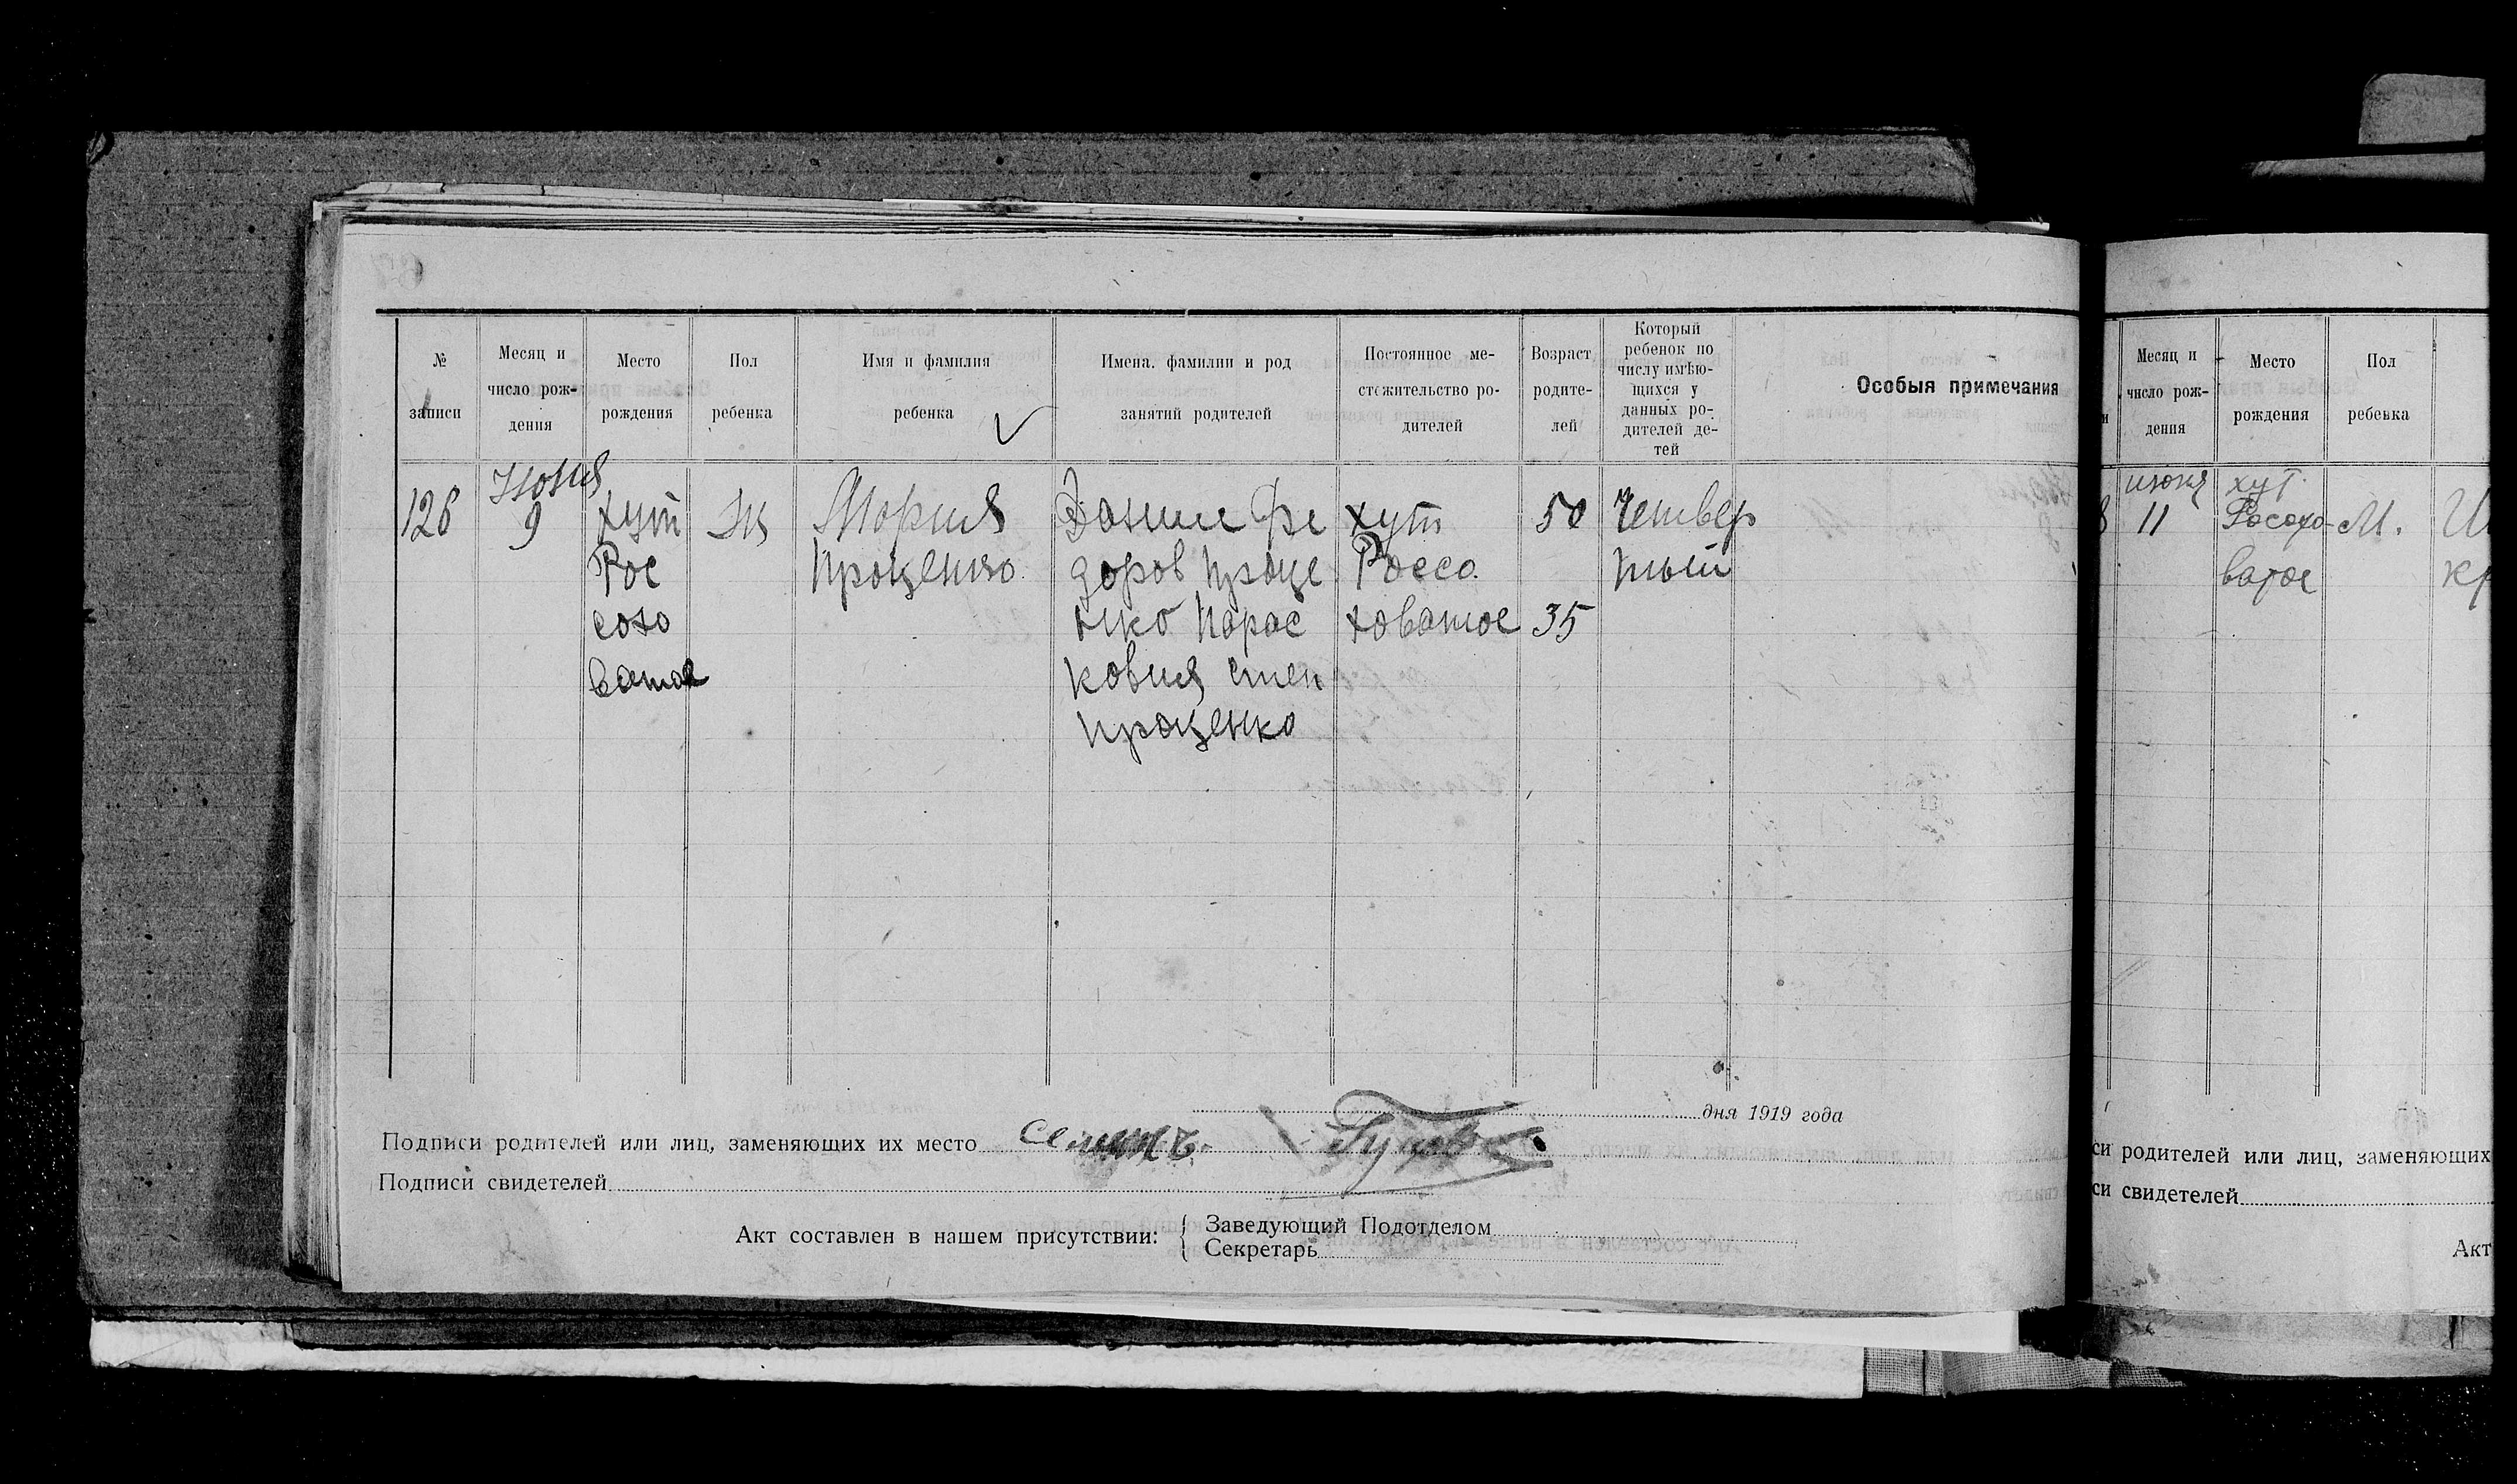 № записи
Месяц и число рождения
Место рождения
Пол ребенка
Имя и фамилия ребенка
Имена. фамилии и род занятий родителей
Постоянное местожительство родителей
Возраст родителей
Который ребенок по числу имѣющихся у данных родителей детей
Особыя примечания
126
Июня
9
хут
Рос
сохо
ватое
Ж
Мария
Проценко
Данил Фе
доров Проце
нко Парас
ковия Степ
Проценко
хут
Россо
ховатое
50
35
Четвер
тый
дня 1919 года
Подписи родителей или лиц, заменяющих их место
Подписи свидетелей
Акт составлен в нашем присутствии:
Заведующий Подотделом
Секретарь
Месяц и
число рож-
дения
Место
рождения
Пол
ребенка
июня
11
хут.
Росохо-
ватое
М.
си родителей или лиц, заменяющих
си свидетелей
Акт